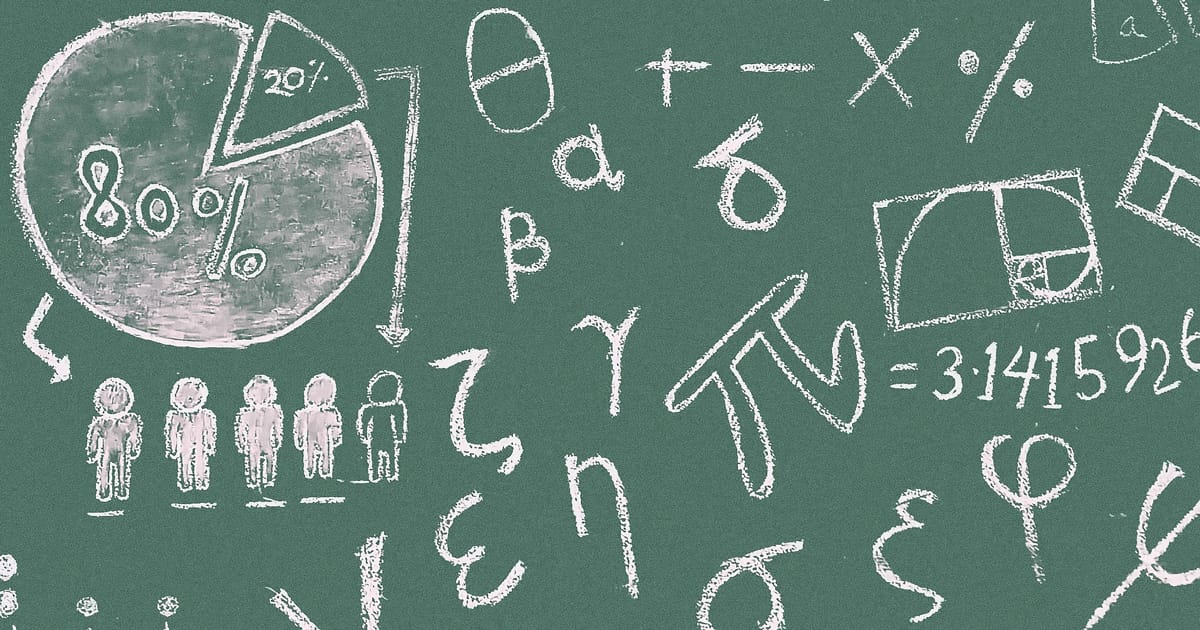 20%
80%
θ + − × %
a
α δ
β
γ
π = 3·1415926
ζ
η
φ
ε
ξ
σ
ψ